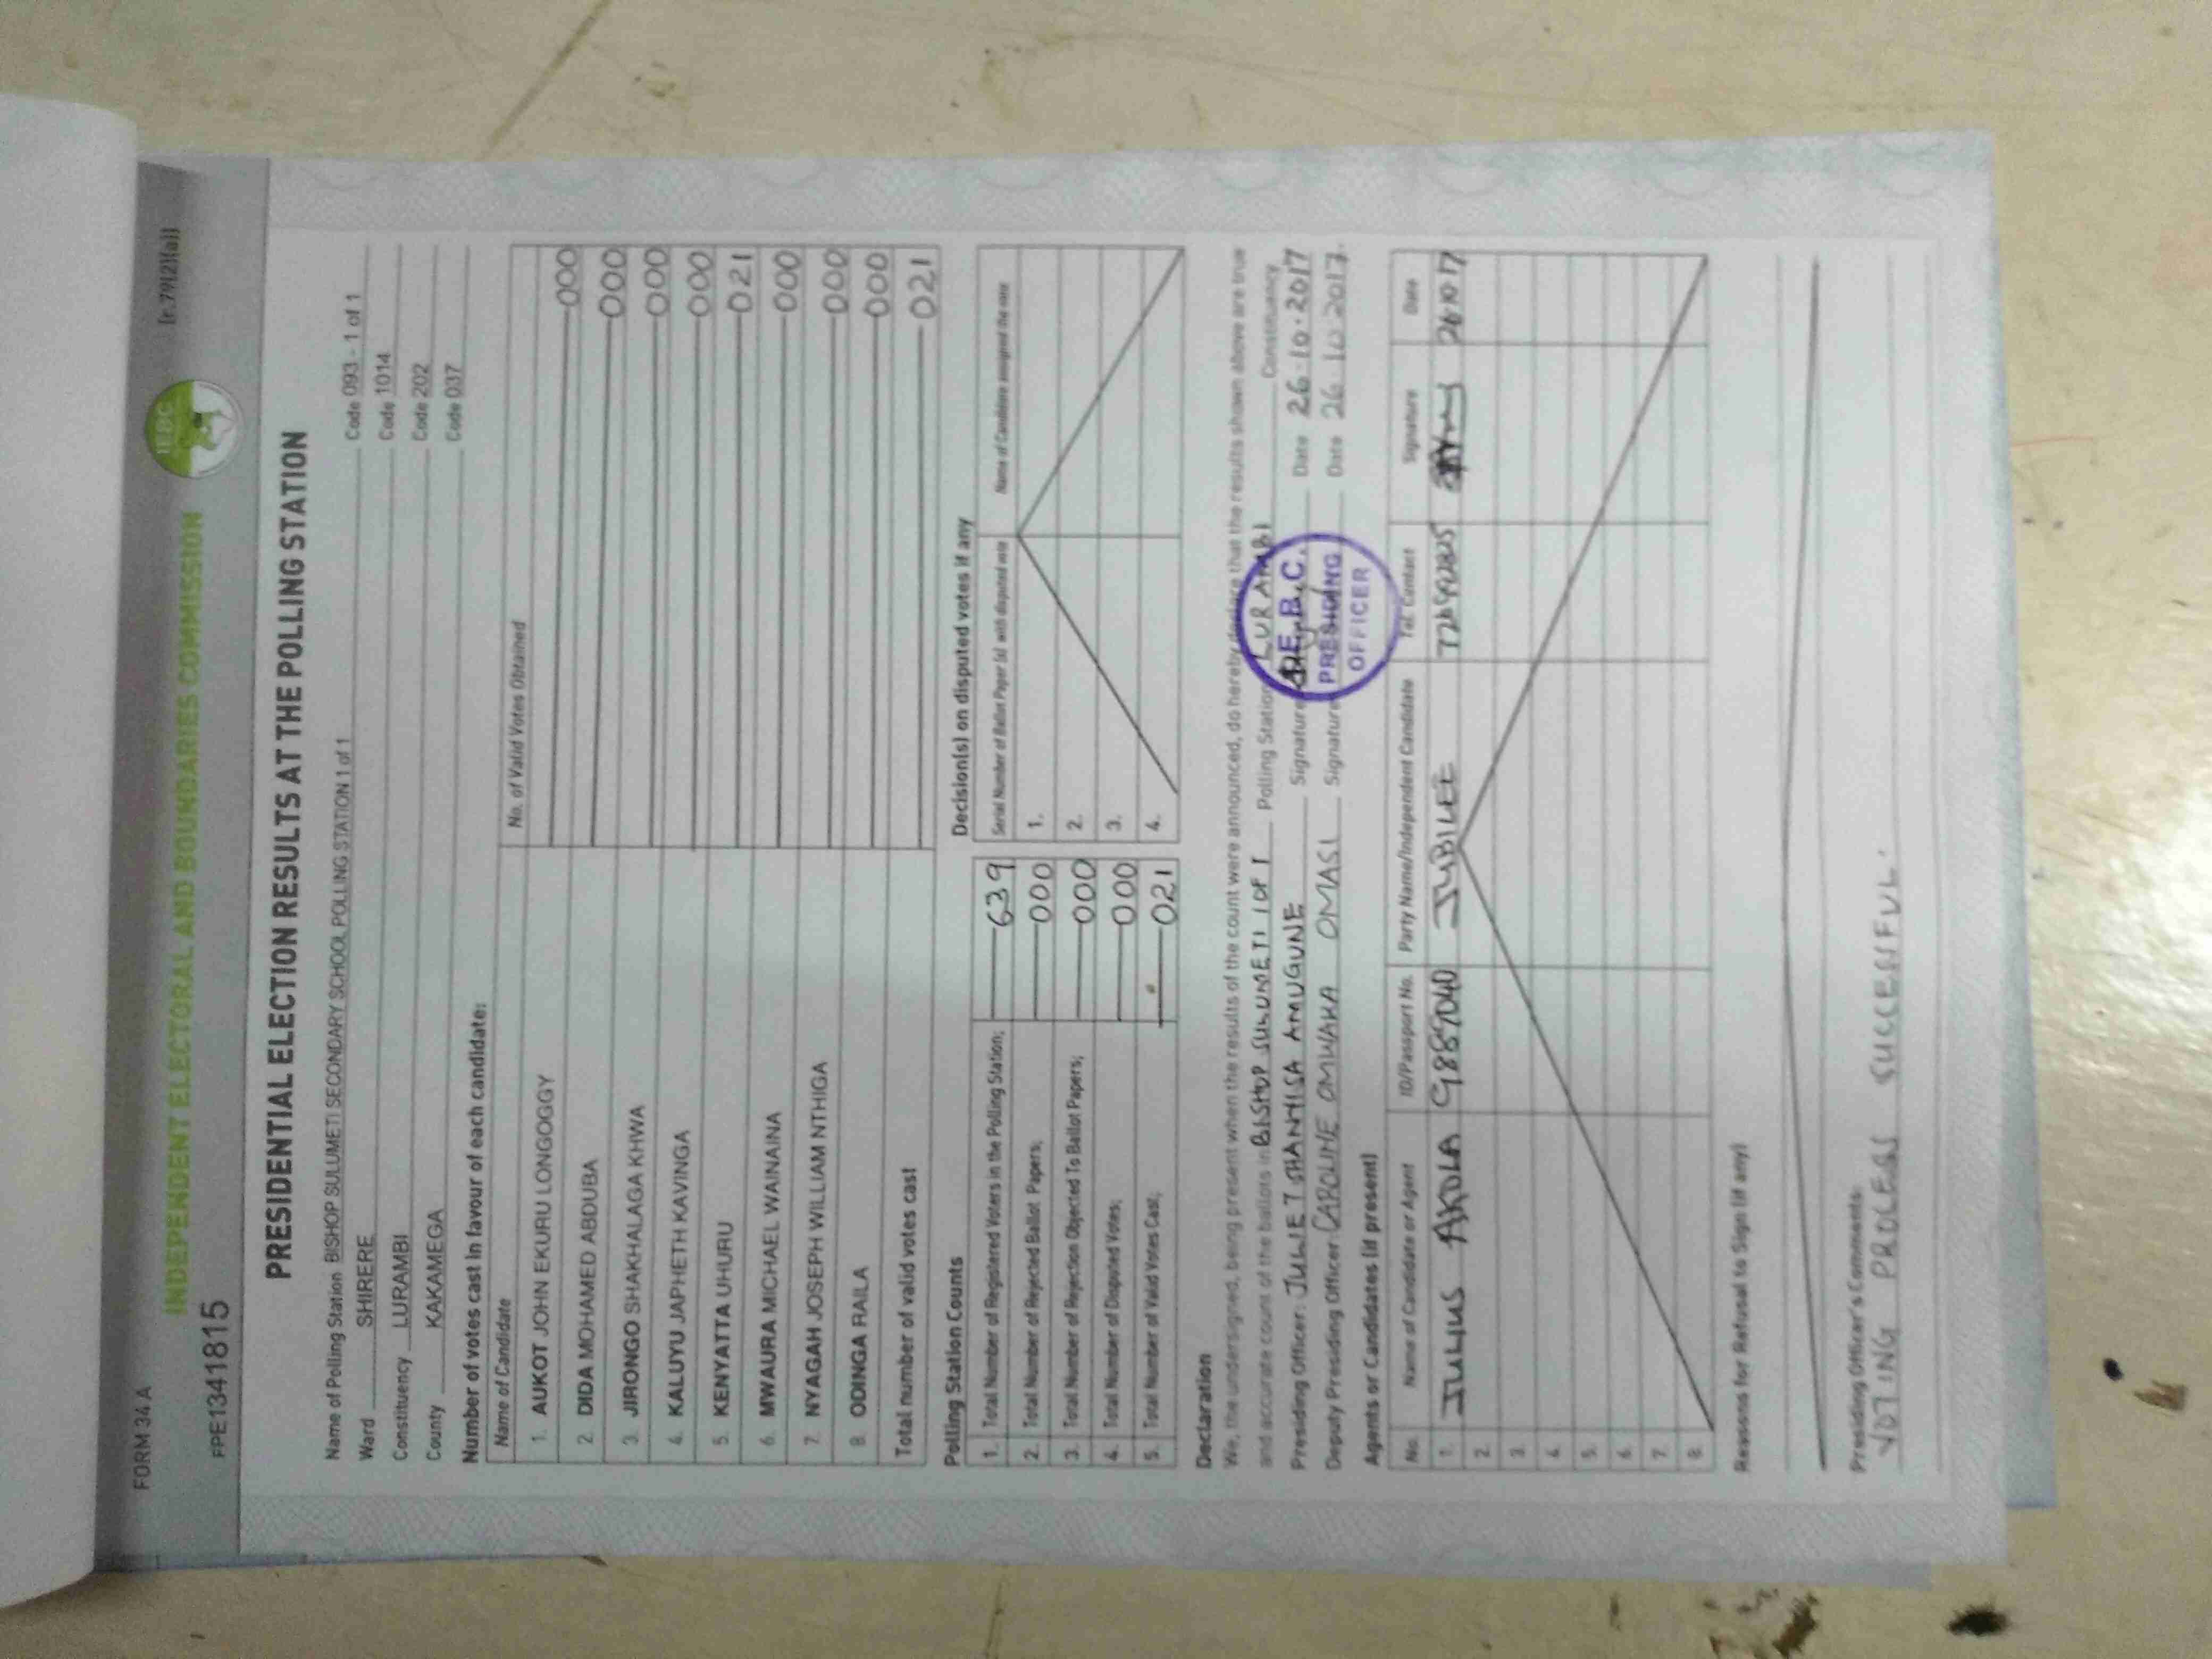 FORM 34 A
[r.79(2)(a)]
INDEPENDENT ELECTORAL AND BOUNDARIES COMMISSION
IEBC
FPE1341815
PRESIDENTIAL ELECTION RESULTS AT THE POLLING STATION
Name of Polling Station BISHOP SULUMETI SECONDARY SCHOOL POLLING STATION 1 of 1 Code 093 - 1 of 1
Ward SHIRERE Code 1014
Constituency LURAMBI Code 202
County KAKAMEGA Code 037
Number of votes cast in favour of each candidate:
Name of Candidate No. of Valid Votes Obtained
1. AUKOT JOHN EKURU LONGOGGY 000
2 DIDA MOHAMED ABDUBA 000
3. JIRONGO SHAKHALAGA KHWA 000
4. KALUYU JAPHETH KAVINGA 000
5. KENYATTA UHURU 021
6. MWAURA MICHAEL WAINAINA 000
7. NYAGAH JOSEPH WILLIAM NTHIGA 000
8. ODINGA RAILA 000
Total number of valid votes cast 021
Polling Station Counts
1. Total Number of Registered Voters in the Polling Station; 639
2. Total Number of Rejected Ballot Papers; 000
3. Total Number of Rejection Objected To Ballot Papers; 000
4. Total Number of Disputed Votes; 000
5. Total Number of Valid Votes Cast; 021
Decision(s) on disputed votes if any
Serial Number of Ballot Paper (s) with disputed vote Name of Candidate assigned the vote
1.
2.
3.
4.
Declaration
We, the undersigned, being present when the results of the count were announced, do hereby declare that the results shown above are true
and accurate count of the ballots in BISHOP SULUMETI 1 OF 1 Polling Station LURAMBI Constituency
Presiding Officer: JULIET Signature Date 26.10.2017
Deputy Presiding Officer: CAROLINE OMWAKA OMASI Signature Date 26 10 2017
I.E.B.C.
PRESIDING
OFFICER
Agents or Candidates (if present)
No. Name of Candidate or Agent ID/Passport No. Party Name/Independent Candidate Tel. Contact Signature Date
1. JULIUS AKOLA JUBILEE
2.
3.
4.
5.
6.
7.
8.
Reasons for Refusal to Sign (if any)
Presiding Officer's Comments:
VOTING PROCESS SUCCESSFUL.